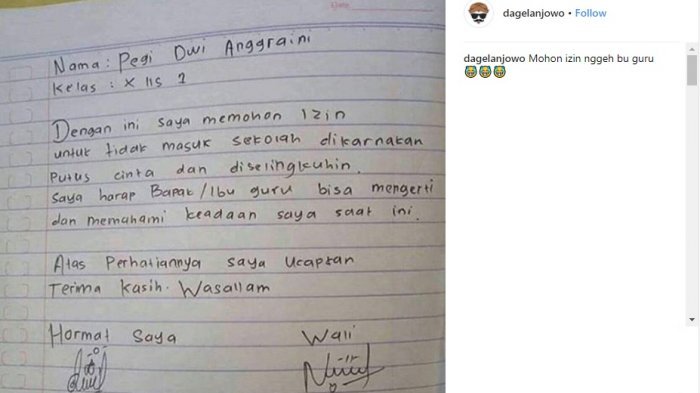 Nama : Pegi Dwi Anggraini
Kelas : X IIS 1
Dengan ini saya memohon Izin
untuk tidak masuk sekolah dikarnakan
Putus cinta dan diselingkuhin.
Saya harap Bapak/Ibu guru bisa mengerti
dan memahami keadaan saya saat ini.
Atas Perhatiannya saya Ucapkan
Terima Kasih. Wasallam
Hormat Saya Wali
dagelanjowo • Follow
dagelanjowo Mohon izin nggeh bu guru